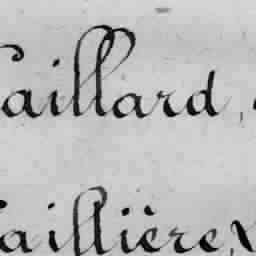 aillard,
aillière,